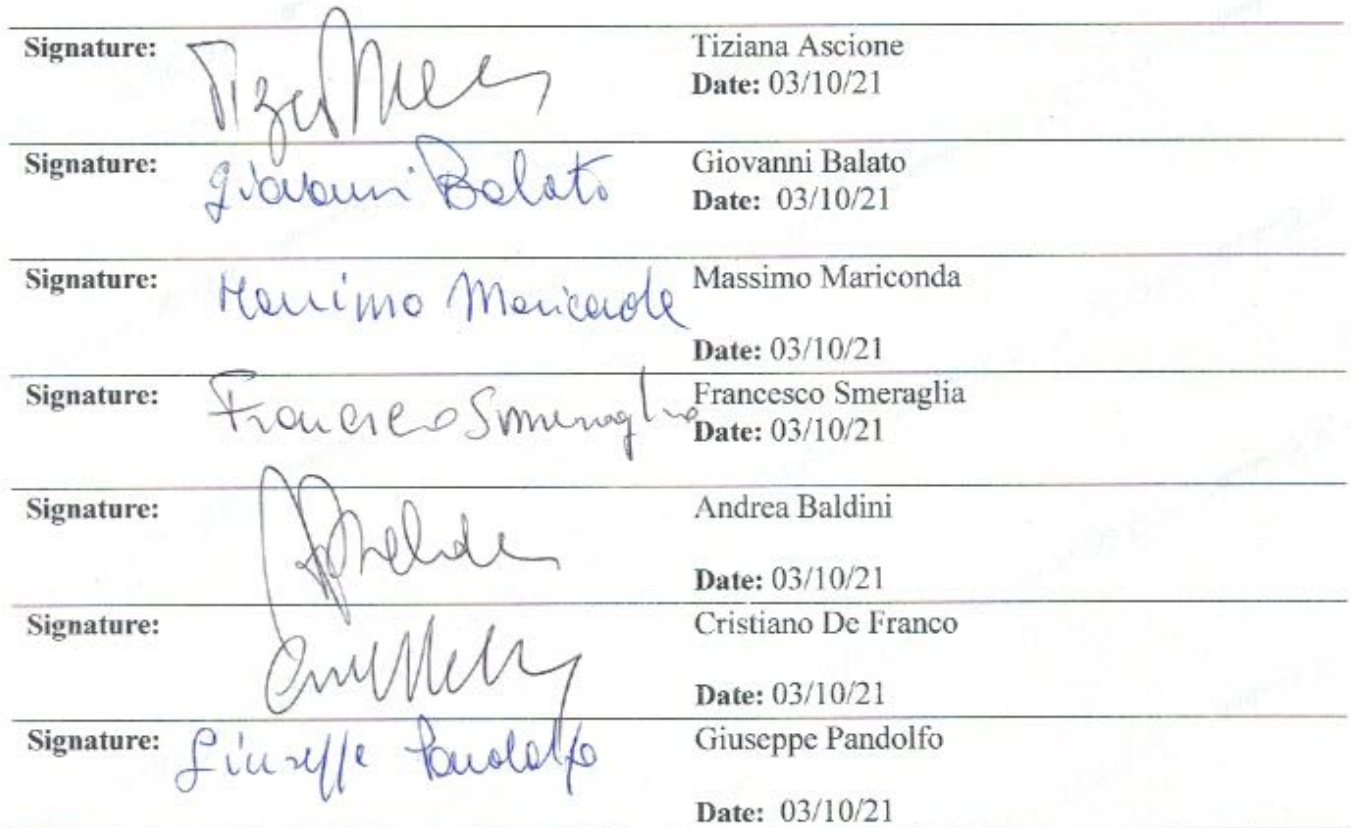 Signature: Tiziana Ascione
Date: 03/10/21
Signature: Giovanni Balato Giovanni Balato
Date: 03/10/21
Signature: Massimo Mariconda Massimo Mariconda
Date: 03/10/21
Signature: Francesco Smeraglia Francesco Smeraglia
Date: 03/10/21
Signature: Andrea Baldini
Date: 03/10/21
Signature: Cristiano De Franco
Date: 03/10/21
Signature: Giuseppe Pandolfo Giuseppe Pandolfo
Date: 03/10/21